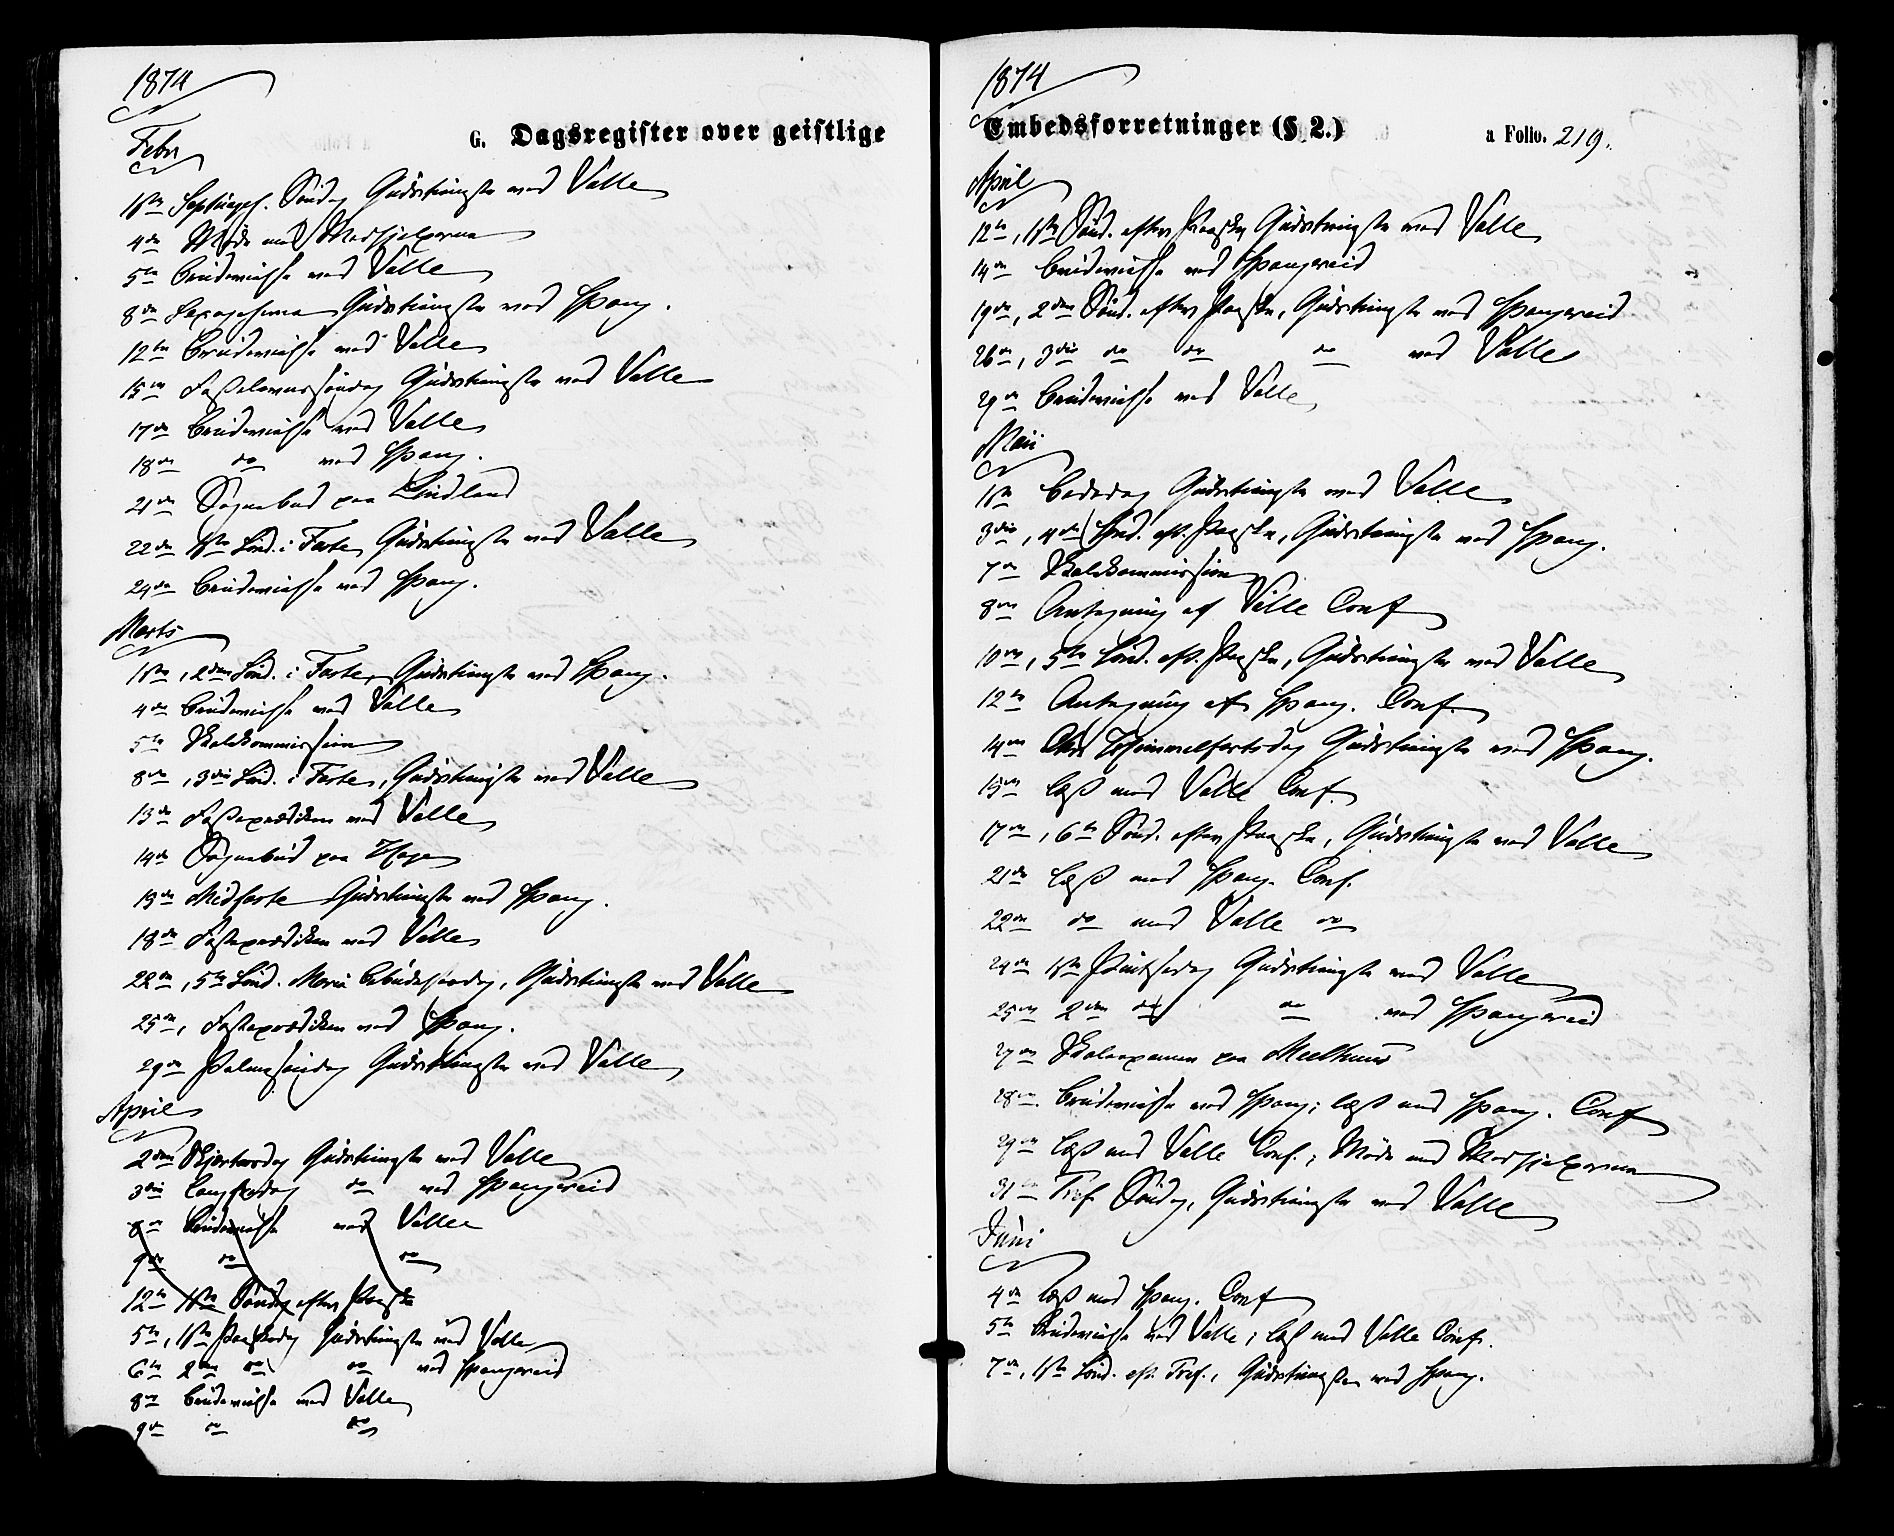 1874
G. Dagsregister over geistlige
Febr
1ste Septuages. Söndag Gudstieneste ved Valle
4de Möde med Medhjelperne
5te Brudevielse ved Valle
8de Sexagesima Gudstieneste ved Spang.
12te Brudevielse ved Valle
15de Fastelavnssöndag Gudstieneste ved Valle
17de Brudevielse ved Valle
18de do ved Spang.
21de Sognebud paa Lindland
22de 1ste Sönd. i Faste, Gudstieneste ved Valle
24de Brudevielse ved Spang.
Marts
1ste, 2den Sönd. i Faste, Gudstieneste ved Spang.
4de Brudevielse ved Valle
5te Skolekommission
8de, 3die Sönd. i Faste, Gudstieneste ved Valle
13de Fasteprædiken ved Valle
14de Sognebud paa Hage
15de Midfaste Gudstieneste ved Spang.
18de Fasteprædiken ved Valle
22de, 5te Sönd. Mariæ Bebudelsesdag, Gudstieneste ved Valle
25de, Fasteprædiken ved Spang.
29de Palmesöndag Gudstieneste ved Valle
April
2den Skjærtorsdag Gudstieneste ved Valle
3die Langfredag do ved Spangereid
8de Brudevielse ved Valle
9de do do
12te 1ste Söndag efter Paaske
5te, 1ste Paaskedag Gudstieneste ved Valle
6te 2den do do ved Spangereid
8de Brudevielse ved Valle
9de do do
1874
Embedsforretninger (§ 2.)
a Folio. 219.
April
12te, 1ste Sönd. efter Paaske, Gudstieneste ved Valle
14de Brudevielse ved Spangereid
19de, 2den Sönd. efter Paaske, Gudstieneste ved Spangereid
26de, 3die do do do ved Valle
29de Brudevielse ved Valle
Mai
1ste Bededag Gudstieneste ved Valle
3die, 4de Sönd. eft. Paaske, Gudstieneste ved Spang.
7de Skolekommission
8de Antegning af Valle Conf
10de, 5te Sönd. eft. Paaske, Gudstieneste ved Valle
12te Antegning af Spang. Conf.
14de Chr. Himmelfartsdag Gudstieneste ved Spang.
15de læst med Valle Conf.
17de, 6te Sönd. efter Paaske, Gudstieneste ved Valle
21de læst med Spang. Conf.
22de do med Valle do
24de 1ste Pintsedag Gudstieneste ved Valle
25de 2den do do ved Spangereid
27de Skoleexamen paa Meelhuus
28de Brudevielse ved Spang; læst med Spang. Conf
29de læst med Valle Conf.; Möde med Medhjelperne
31te Tref. Söndag, Gudstieneste ved Valle
Juni
4de læst med Spang. Conf
5te Brudevielse ved Valle; læst med Valle Conf.
7de, 1ste Sönd. eft. Tref., Gudstieneste ved Spang.